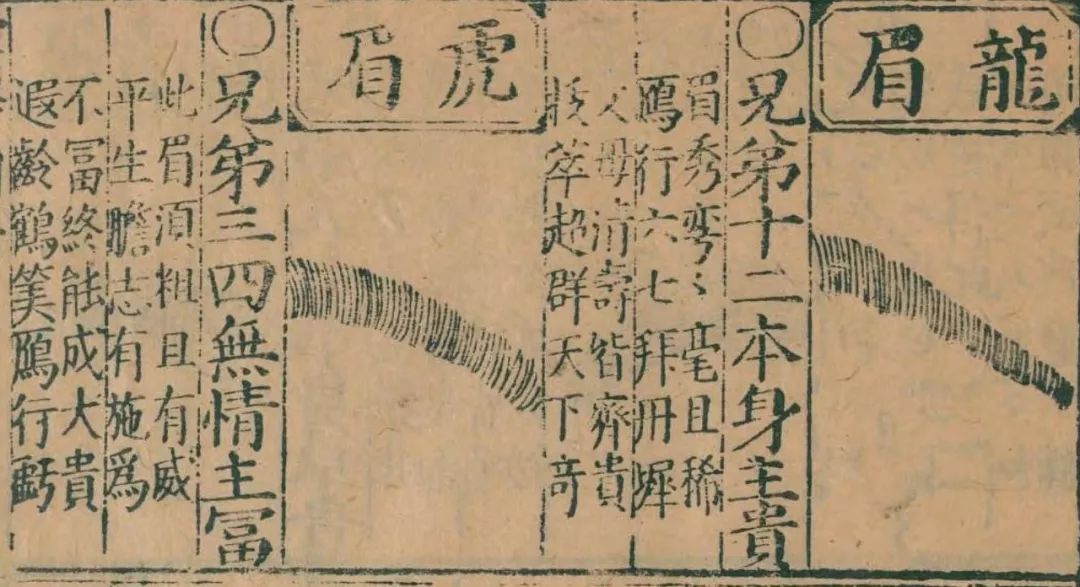 龍眉
○兄第十二本身主貴
眉秀彎〻毫且稀
鴈行六七拜丹墀
父母清壽皆齊貴
拔萃超群天下竒
虎眉
○兄第三四無情主冨
此眉湏粗且有威
平生膽志有施爲
不冨終能成大貴
遐齡鶴筭鴈行虧